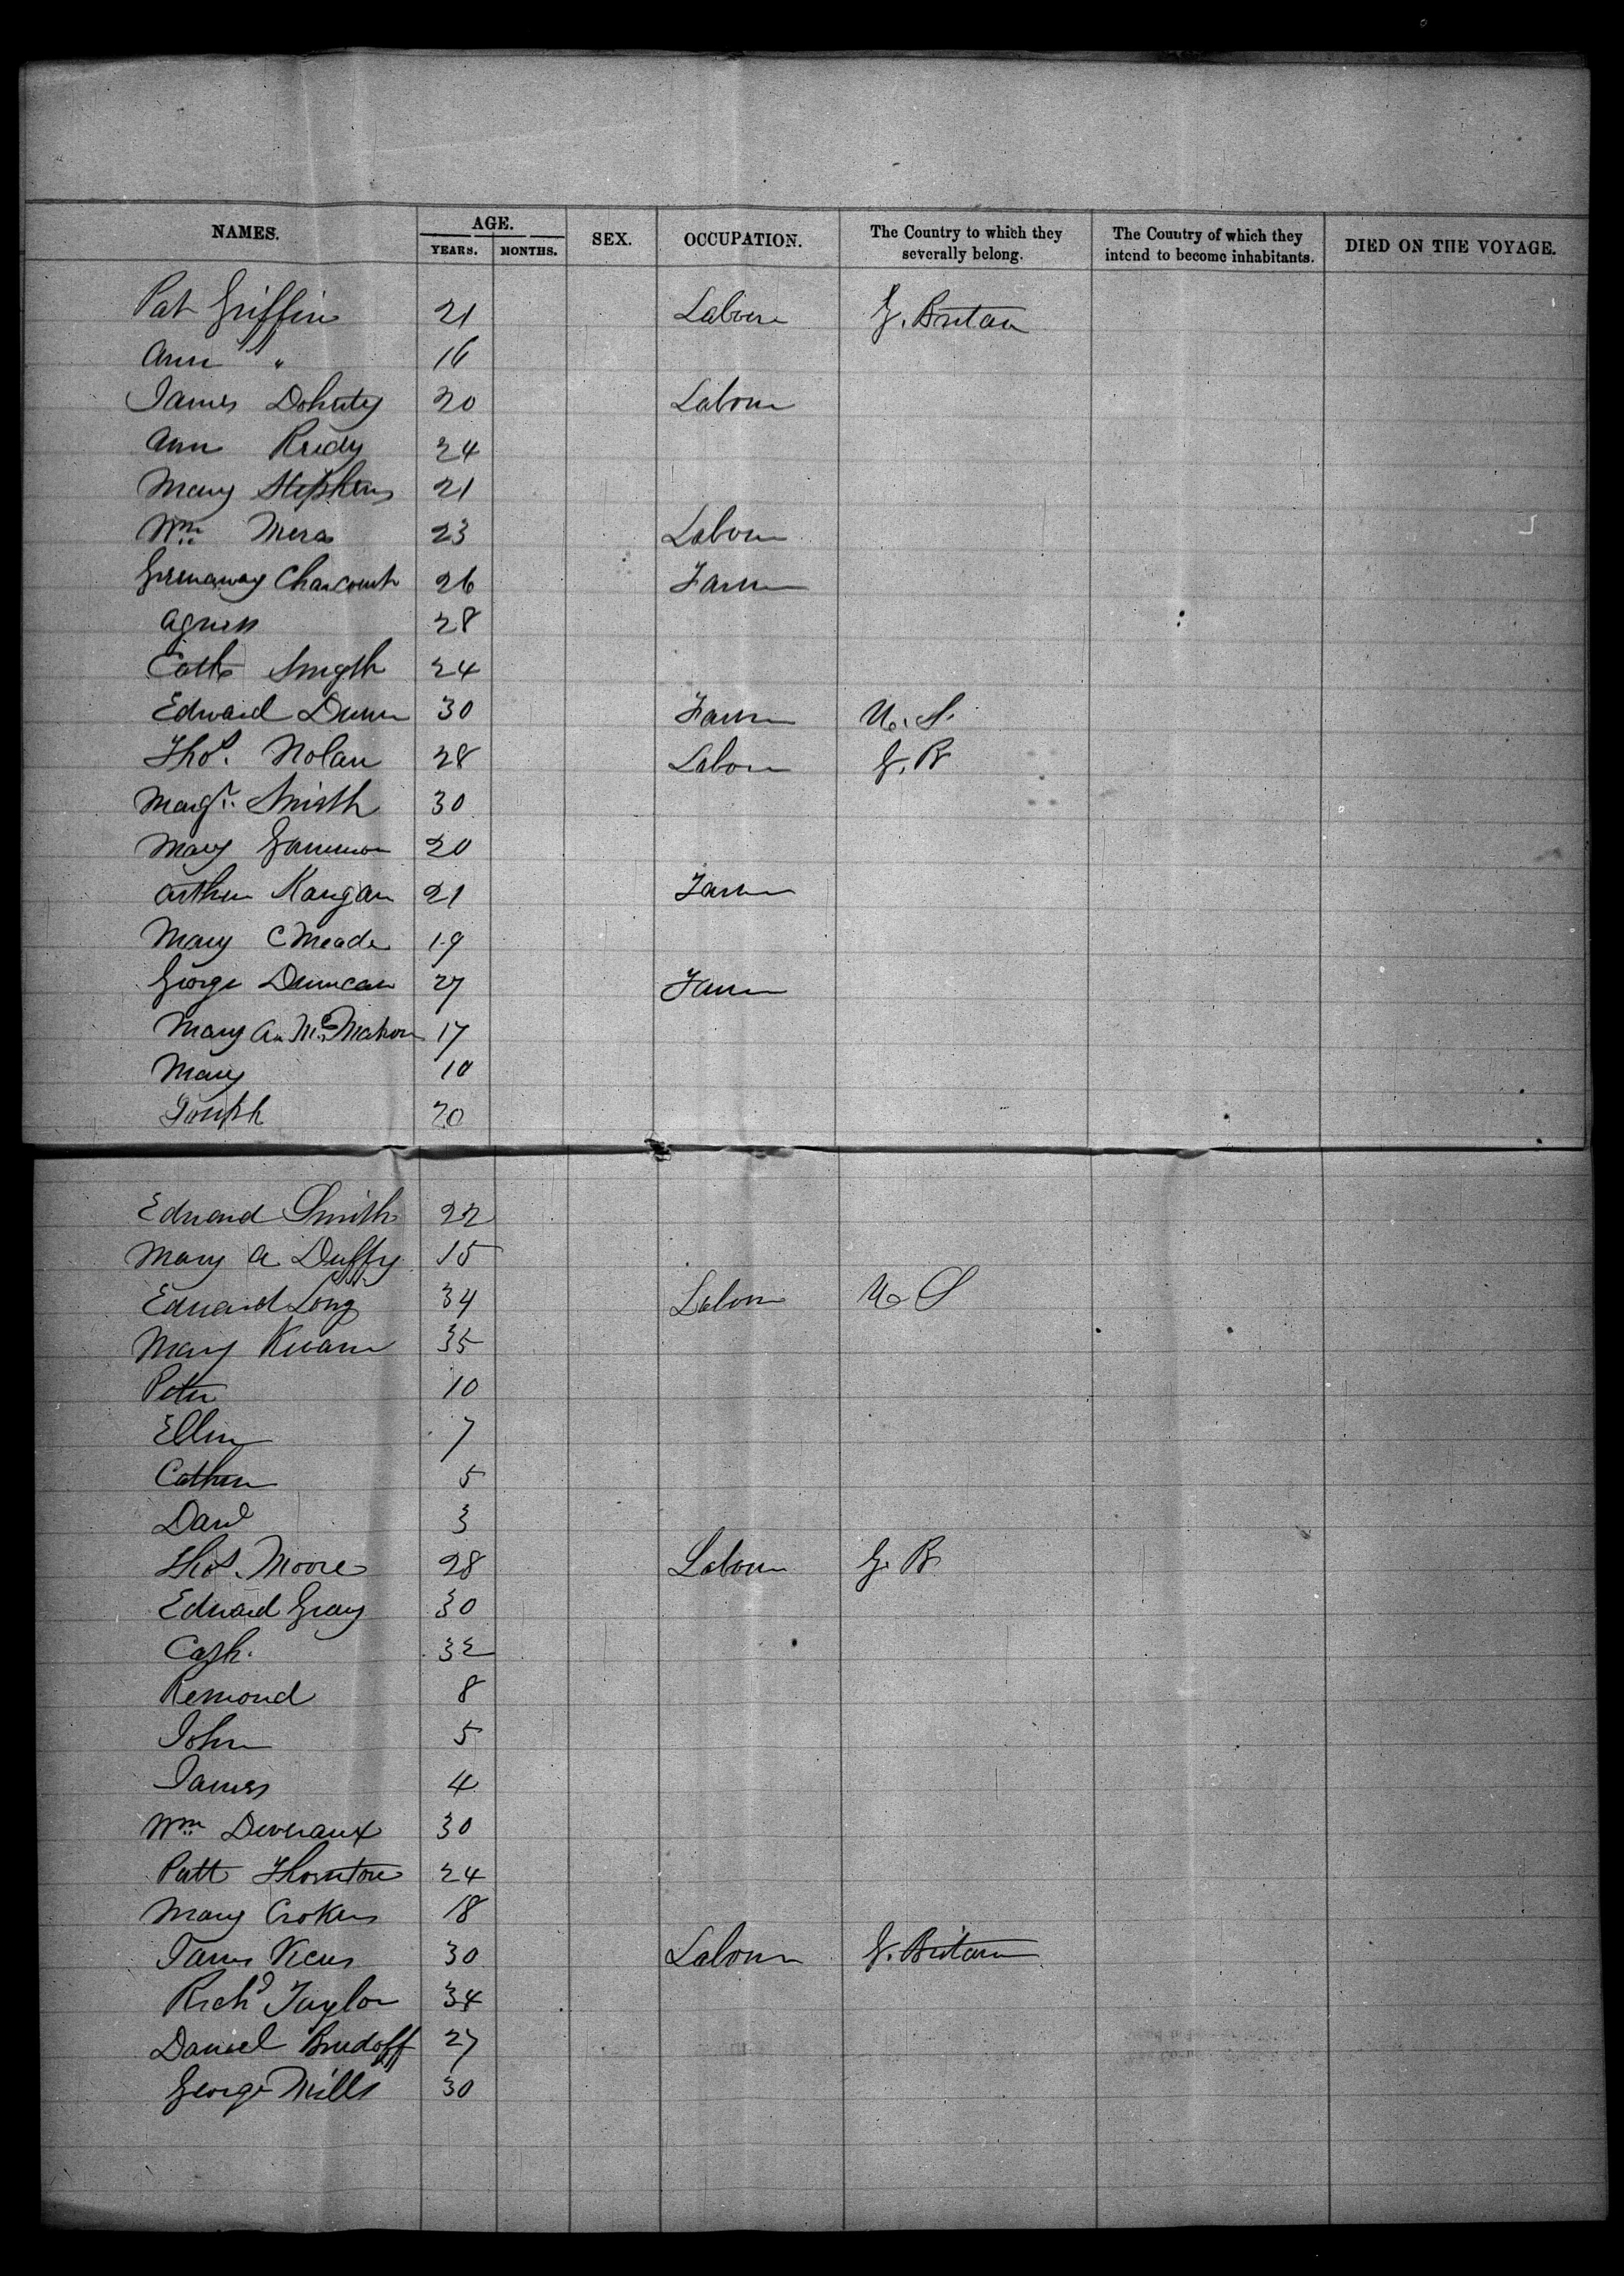 NAMES. AGE. SEX. OCCUPATION. The Country to which they severally belong. The Country of which they intend to become inhabitants. DIED ON THE VOYAGE.
YEARS. MONTHS.
Pat Griffin 21 Labour G. Britain
Ann " 16
James Dohirty 20 Labour
Ann Reidy 24
Mary Stephens 21
Wm Mera 23 Labour
Greenaway 26 Farm
Agness 28
Cath Smyth 24
Edward Dunn 30 Farm U. S.
Thos. Nolan 28 Labour G. B
Margt. Smith 30
Mary Gammon 20
Arthur Kangan 21 Farm
Mary C Meade 19
George Duncan 27 Farm
Mary A. McMahon 17
Mary 10
Joseph 20
Edward Smith 22
Mary A Duffy 15
Edward Long 34 Labour U S
Mary Kieran 35
Peter 10
Ellen 7
Cathern 5
Danl 3
Thos. Moore 28 Labour G. B
Edward Gray 30
Cath. 32
Remond 8
John 5
James 4
Wm Deveraux 30
Patt Thornton 24
Mary Crokers 18
James 30 Labour G. Britain
Richd Taylor 34
Daniel 27
George Mills 30